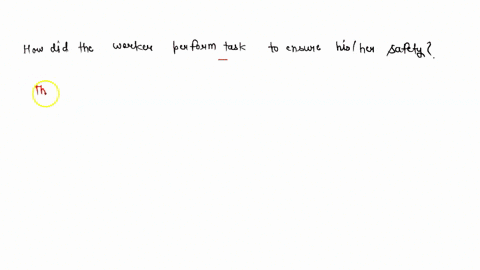 How did the worker perform task to ensure his/her safety?
Th